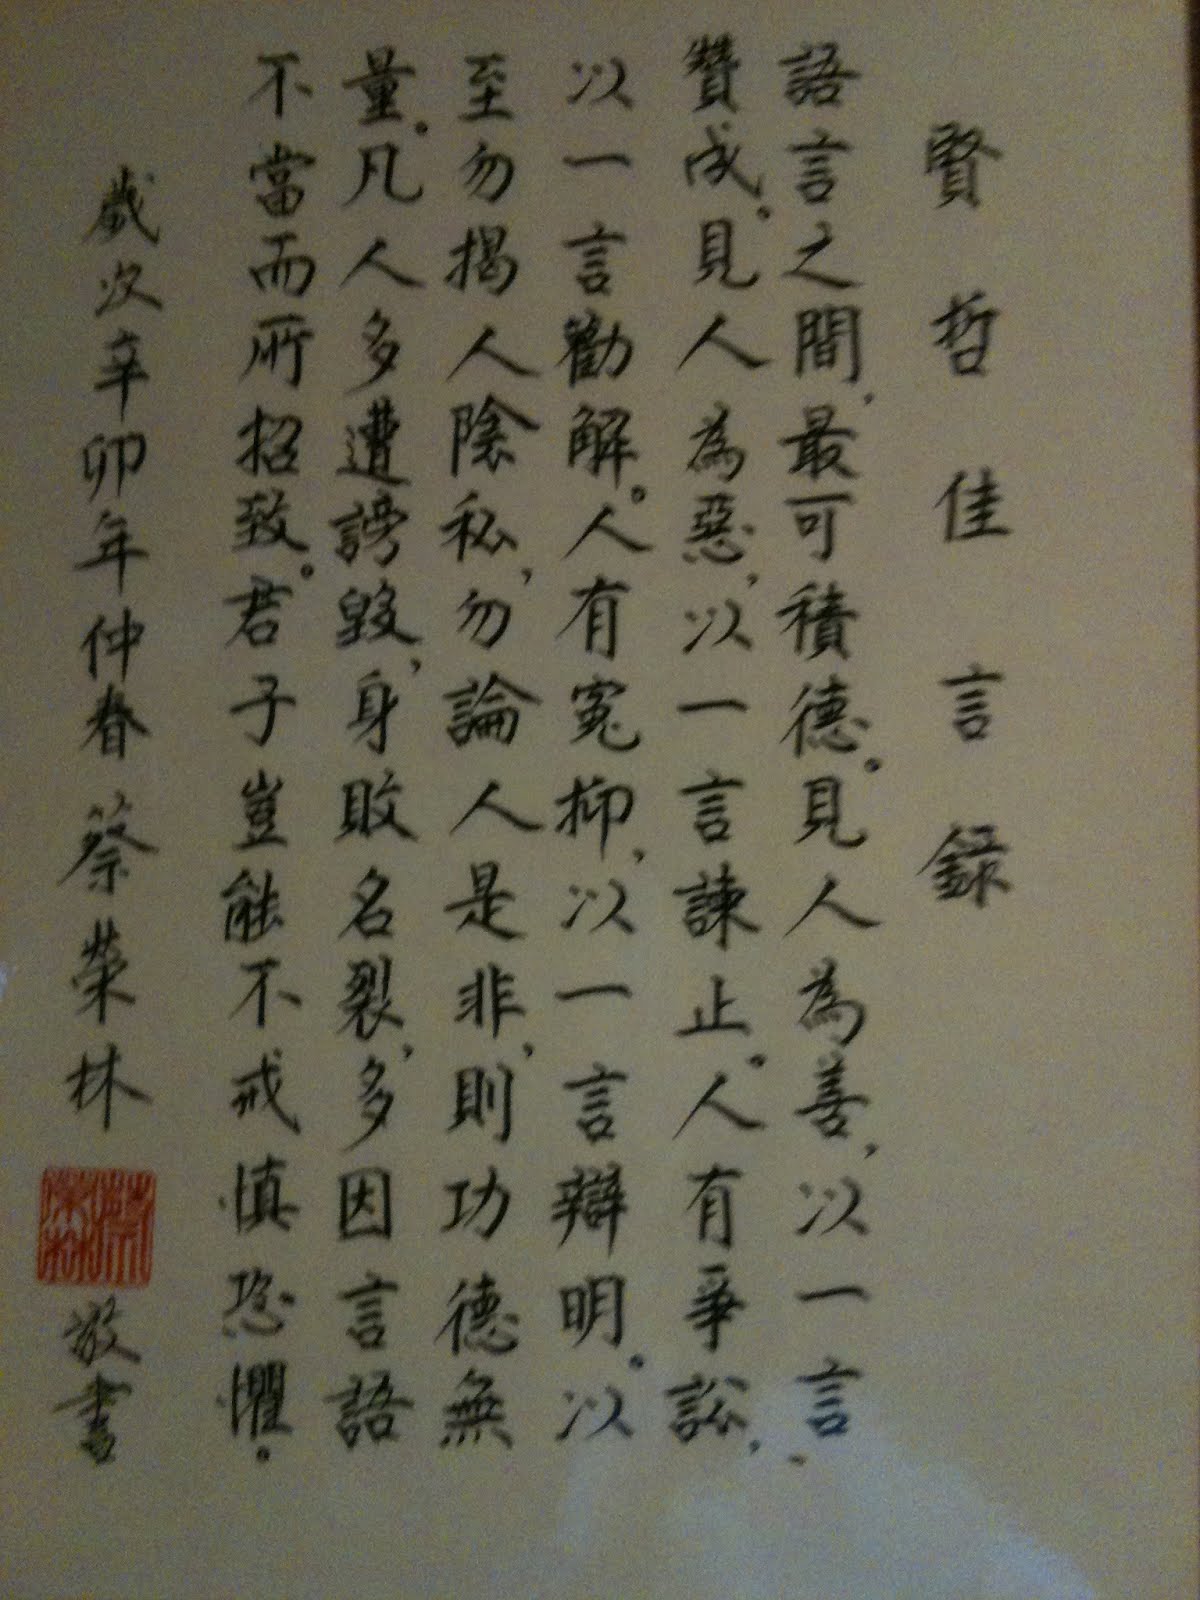 賢哲佳言錄
語言之間,最可積德。見人為善,以一言
贊成。見人為惡,以一言諫止。人有爭訟,
以一言勸解。人有冤抑,以一言辯明。以
至勿揭人陰私,勿論人是非,則功德無
量。凡人多遭謗毀,身敗名裂,多因言語
不當而所招致。君子豈能不戒慎恐懼。
歲次辛卯年仲春蔡榮林
敬書